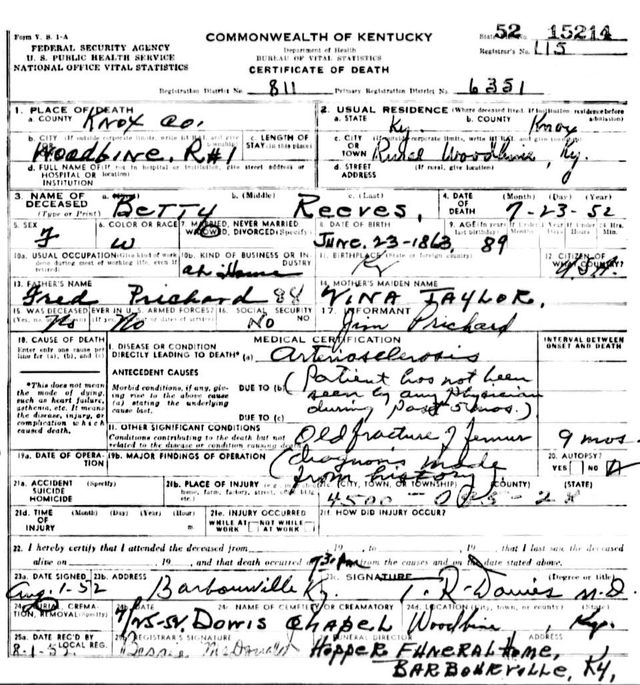 Form V. S. 1-A
FEDERAL SECURITY AGENCY
U. S. PUBLIC HEALTH SERVICE
NATIONAL OFFICE VITAL STATISTICS
COMMONWEALTH OF KENTUCKY
Department of Health
BUREAU OF VITAL STATISTICS
CERTIFICATE OF DEATH
52 15214
Registrar's No. 115
Registration District No. 811 Primary Registration District No. 6351
1. PLACE OF DEATH
a. COUNTY Knox Co.
2. USUAL RESIDENCE (Where deceased lived. If institution residence before admission)
a. STATE Ky. b. COUNTY Knox
b. CITY Woodbine, R#1
c. LENGTH OF STAY (in this place)
c. CITY OR TOWN Rural Woodbine, Ky.
d. FULL NAME OF HOSPITAL OR INSTITUTION
d. STREET ADDRESS (If rural, give location)
3. NAME OF DECEASED (Type or Print) Betty
b. (Middle)
c. (Last) Reeves,
4. DATE OF DEATH (Month) (Day) (Year) 7-23-52
5. SEX F
6. COLOR OR RACE W
7. MARRIED, NEVER MARRIED WIDOWED, DIVORCED (Specify)
DATE OF BIRTH June. 23-1863,
9. AGE 89
10a. USUAL OCCUPATION
10b. KIND OF BUSINESS OR INDUSTRY at Home
11. BIRTHPLACE Ky
12. CITIZEN OF WHAT COUNTRY?
13. FATHER'S NAME Fred Prichard 88
14. MOTHER'S MAIDEN NAME Vina Taylor,
15. WAS DECEASED EVER IN U. S. ARMED FORCES? No No
16. SOCIAL SECURITY NO. No
17. INFORMANT Jim Prichard
18. CAUSE OF DEATH
Enter only one cause per line for (a), (b), and (c)
*This does not mean the mode of dying, such as heart failure, asthenia, etc. It means the disease, injury, or complication which caused death.
MEDICAL CERTIFICATION
INTERVAL BETWEEN ONSET AND DEATH
I. DISEASE OR CONDITION DIRECTLY LEADING TO DEATH* (a) Arteriosclerosis
ANTECEDENT CAUSES
Morbid conditions, if any, giving rise to the above cause (a) stating the underlying cause last.
DUE TO (b) (Patient has not been
seen by any Physician
DUE TO (c) during past 5 mos.)
II. OTHER SIGNIFICANT CONDITIONS
Conditions contributing to the death but not related to the disease or condition causing death.
Old fracture of femur 9 mos.
19a. DATE OF OPERATION
19b. MAJOR FINDINGS OF OPERATION (diagnosis made
from history
20. AUTOPSY? YES NO
21a. ACCIDENT SUICIDE HOMICIDE (Specify)
21b. PLACE OF INJURY
(CITY, TOWN, OR TOWNSHIP) (COUNTY) (STATE)
21d. TIME OF INJURY (Month) (Day) (Year) (Hour) m
21e. INJURY OCCURRED WHILE AT WORK NOT WHILE AT WORK
21f. HOW DID INJURY OCCUR?
22. I hereby certify that I attended the deceased from 19 , to 19 , that I last saw the deceased
alive on 19 , and that death occurred from the causes and on the date stated above.
23a. DATE SIGNED Aug 1-52
23b. ADDRESS Barbourville Ky.
23c. SIGNATURE (Degree or title) T. R. Davies M.D.
24a. BURIAL, CREMATION, REMOVAL (Specify)
24b. DATE 7/25-52
24c. NAME OF CEMETERY OR CREMATORY Dowis Chapel
24d. LOCATION (City, town, or county) (State) Woodbine, Ky.
25a. DATE REC'D BY LOCAL REG. 8-1-52
25b. REGISTRAR'S SIGNATURE Bessie McDonald
FUNERAL DIRECTOR ADDRESS
Hopper Funeral Home,
Barbourville, Ky,